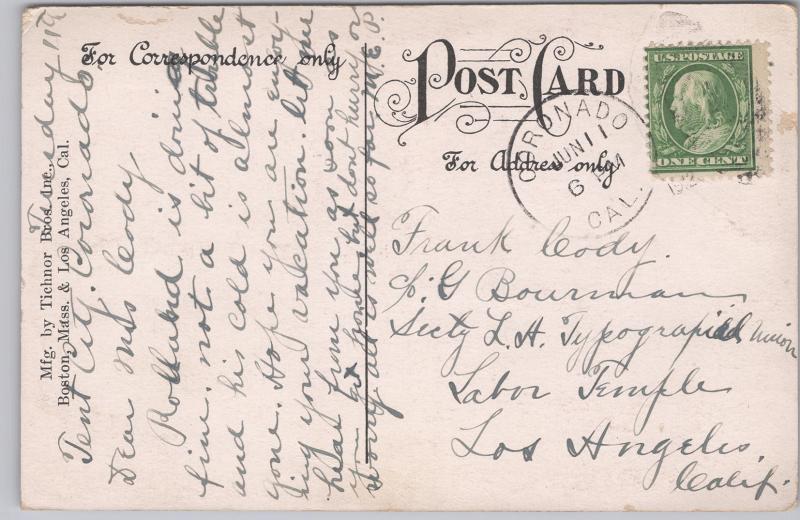 For Correspondence only
POST CARD
For Address only
U.S. POSTAGE
ONE CENT
CORONADO
JUN 11
6 PM
CAL.
Mfg. by Tichnor Bros. Inc.,
Boston, Mass. & Los Angeles, Cal.
Tuesday 11th
Tent City, Coronado
Dear Mrs Cody
Rolland is doing
fine. not a bit of trouble
and his cold is almost
gone. Hope you are enjoy-
ing your vacation. let me
hear from you as soon as
you get home, but dont hurry or
worry all is well so far. M. E. P.
Frank Cody.
℅ G Bowman
Secty L. A. Typographical Union
Labor Temple
Los Angeles.
Calif.